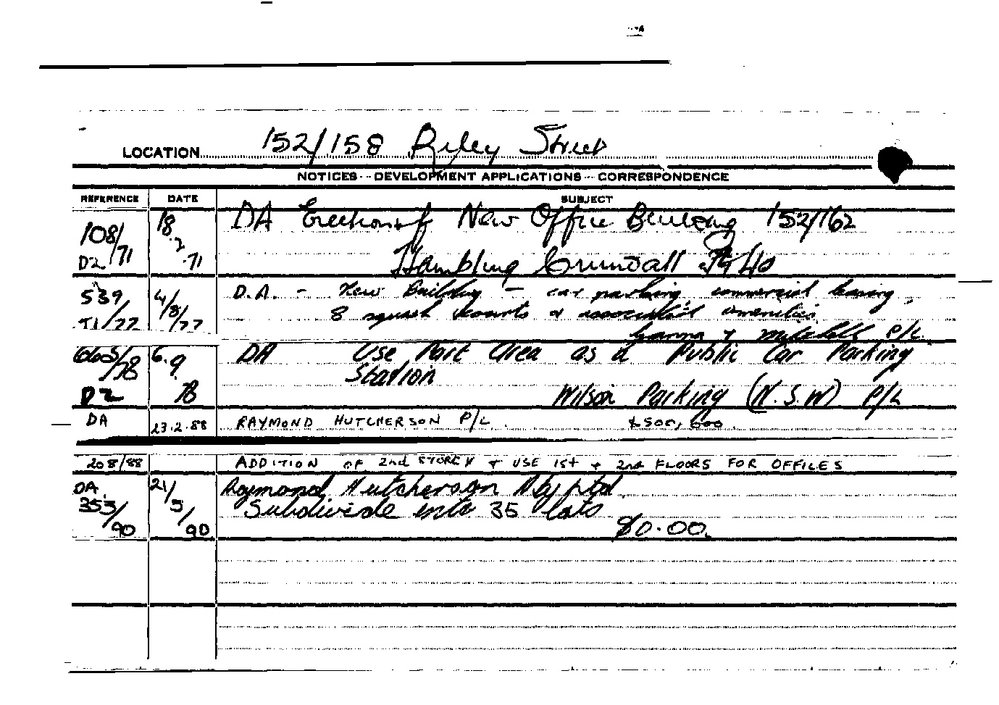 LOCATION 152/158 Riley Street
NOTICES - DEVELOPMENT APPLICATIONS - CORRESPONDENCE
REFERENCE DATE SUBJECT
108/71 D2 18.2.71 DA Erection of New Office Building 152/162
Hambling Crundall
539/77 4/8/77 D.A. - New Building - car parking commercial
8 squash courts & associated amenities
& Mitchell P/L
663/78 D2 6.9.78 DA Use Part Area as a Public Car Parking
Station
Wilson Parking (N.S.W) P/L
DA 23.2.88 RAYMOND HUTCHERSON P/L $500,000
208/88 ADDITION OF 2nd STOREY & USE 1st & 2nd FLOORS FOR OFFICES
DA 353/90 21/5/90 Raymond Hutcherson
Subdivide into 35 lots
$0.00